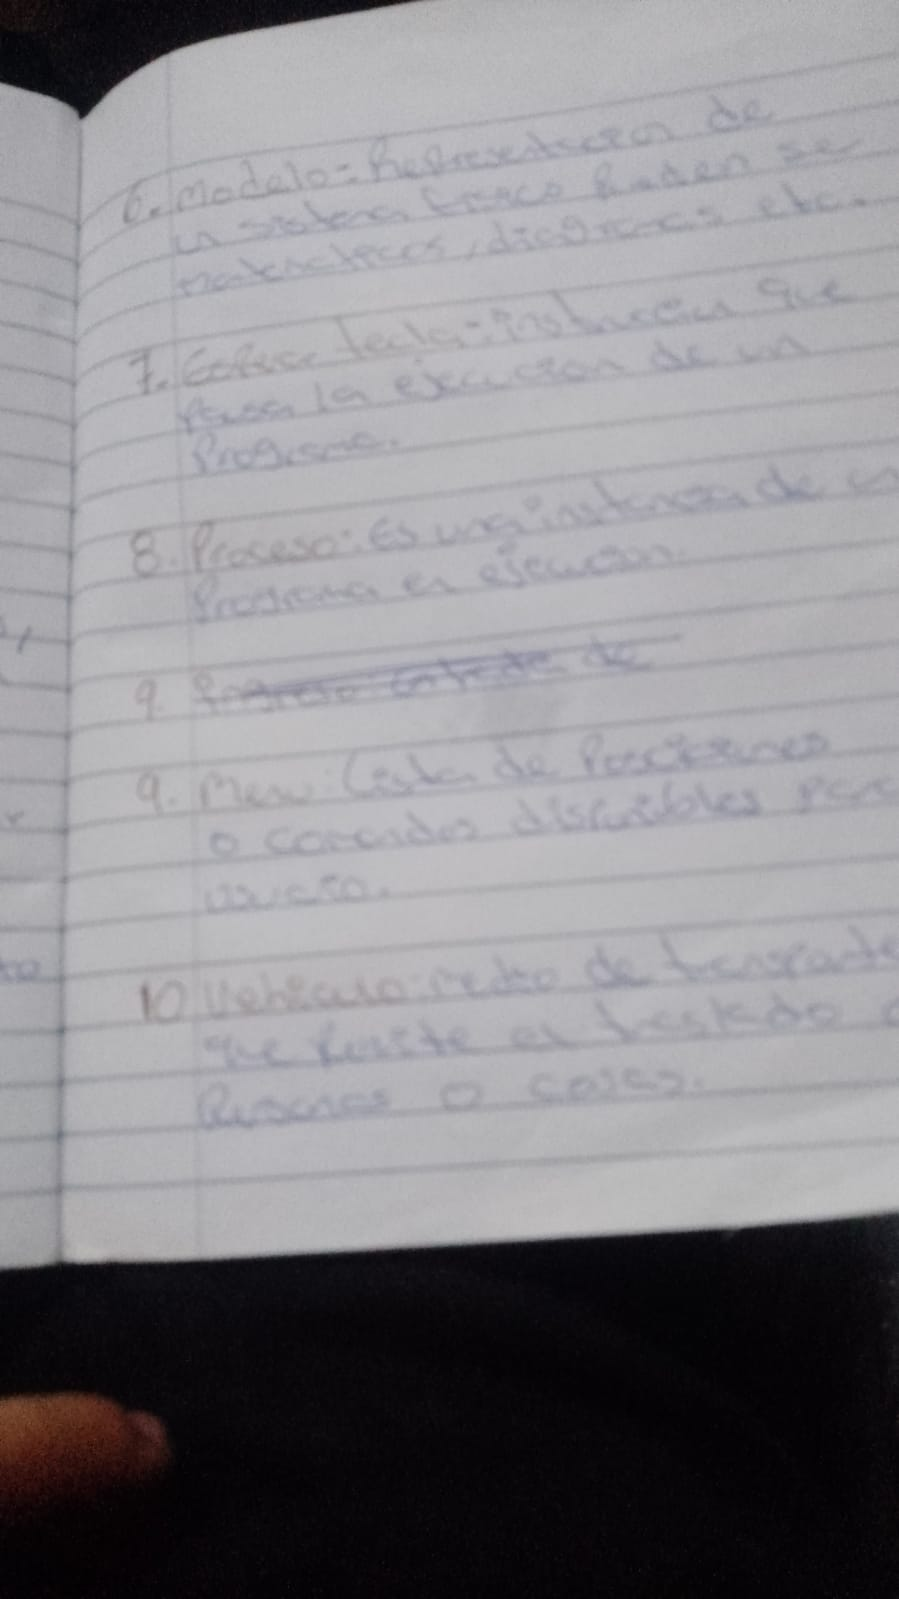 6. Modelo = Representacion de
un sistema fisico Pueden ser
matematicos, diagramas etc.
7. tecla: instruccion que
Pausa la ejecucion de un
Programa.
8. Proceso: Es una instancia de un
Programa en ejecucion.
9.
9. Menu: Lista de
o comandos disponibles para
usuario.
10 Vehiculo: medio de transporte
que Permite el traslado
Personas o cosas.